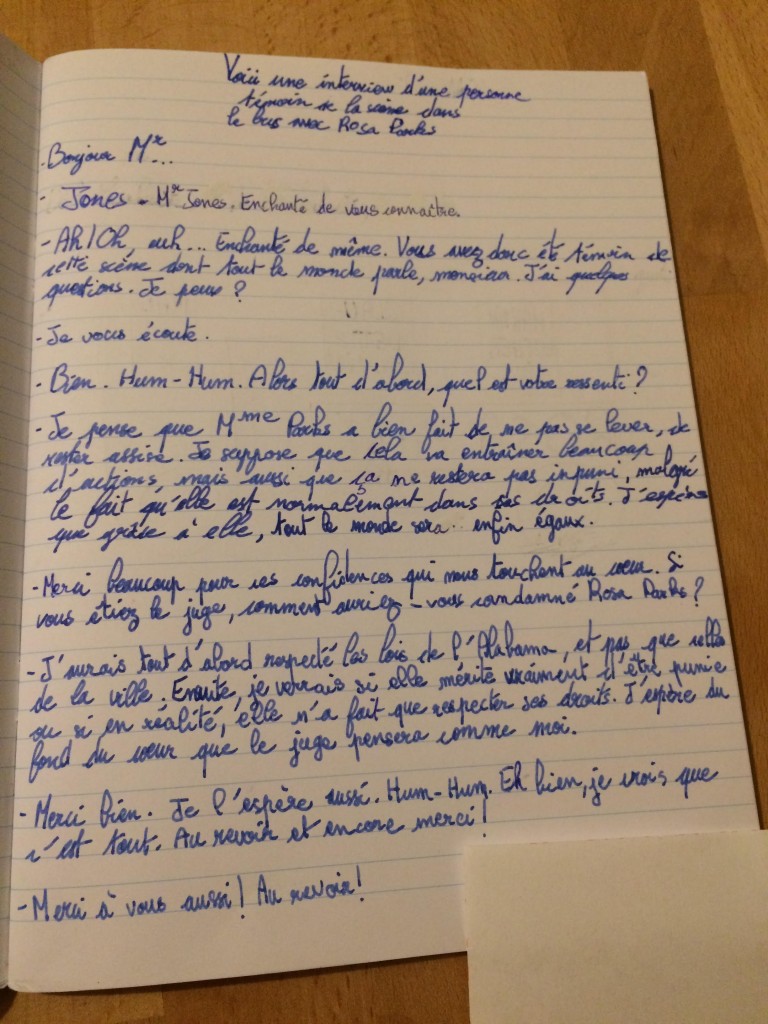 Voici une interview d'une personne
témoin de la scène dans
le bus avec Rosa Parks
- Bonjour Mr...
- Jones - Mr Jones. Enchanté de vous connaître.
- Ah/Oh, euh... Enchanté de même. Vous avez donc été témoin de
cette scène dont tout le monde parle, monsieur. J'ai quelques
questions. Je peux ?
- Je vous écoute.
- Bien. Hum-Hum. Alors tout d'abord, quel est votre ressenti ?
- Je pense que Mme Parks a bien fait de ne pas se lever, de
rester assise. Je suppose que cela va entraîner beaucoup
d'actions, mais aussi que ça ne restera pas impuni, malgré
le fait qu'elle est normalement dans ses droits. J'espère
que grâce à elle, tout le monde sera enfin égaux.
- Merci beaucoup pour ces confidences qui nous touchent au cœur. Si
vous étiez le juge, comment auriez-vous condamné Rosa Parks ?
- J'aurais tout d'abord respecté les lois de l'Alabama, et pas que celles
de la ville. Ensuite, je verrais si elle mérite vraiment d'être punie
ou si en réalité, elle n'a fait que respecter ses droits. J'espère du
fond du cœur que le juge pensera comme moi.
- Merci bien. Je l'espère aussi. Hum-Hum. Eh bien, je crois que
c'est tout. Au revoir et encore merci !
- Merci à vous aussi ! Au revoir !